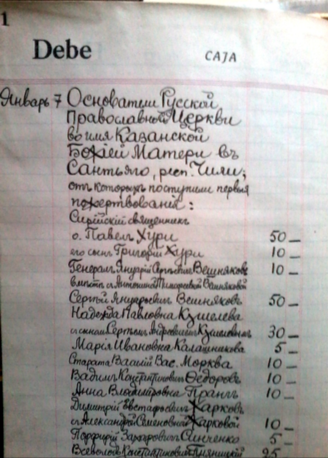 1
Debe CAJA
Январь 7 Основатели Русской
Православной Церкви
во имя Казанской
Божіей Матери въ
Сантьяго, респ. Чили,
отъ которыхъ поступили первыя
пожертвованія:
Сирійскій священникъ
о. Павелъ Хури 50 —
его сынъ Григорій Хури 10 —
Генералъ Януарій Вешняковъ 10 —
вмѣстѣ съ Вешняковой
Сергѣй Януаровичъ Вешняковъ 50 —
Надежда Павловна Кушелева
съ сыномъ Сергѣемъ 30 —
Марія Ивановна Калашникова 5 —
Василій Вас. Морква 10 —
Вадимъ Константиновичъ Ѳедоровъ 10 —
Анна Владиміровна Прангъ 10 —
Димитрій Евстафьевичъ Харковъ
съ Александрой Семеновной Харковой 10 —
Порфирій Захаровичъ Синченко 5 —
Всеволодъ Константиновичъ 25 —